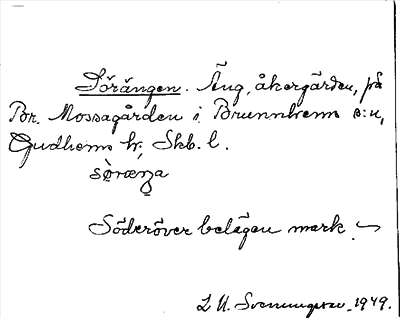 Sörängen. Äng, åkergärden, på
Br. Mossagården i Brunnhems s:n,
Gudhems hr, Skb. l.
sö̀ræŋa
Söderöver belägen mark.
L M. Svenungsson 1949.